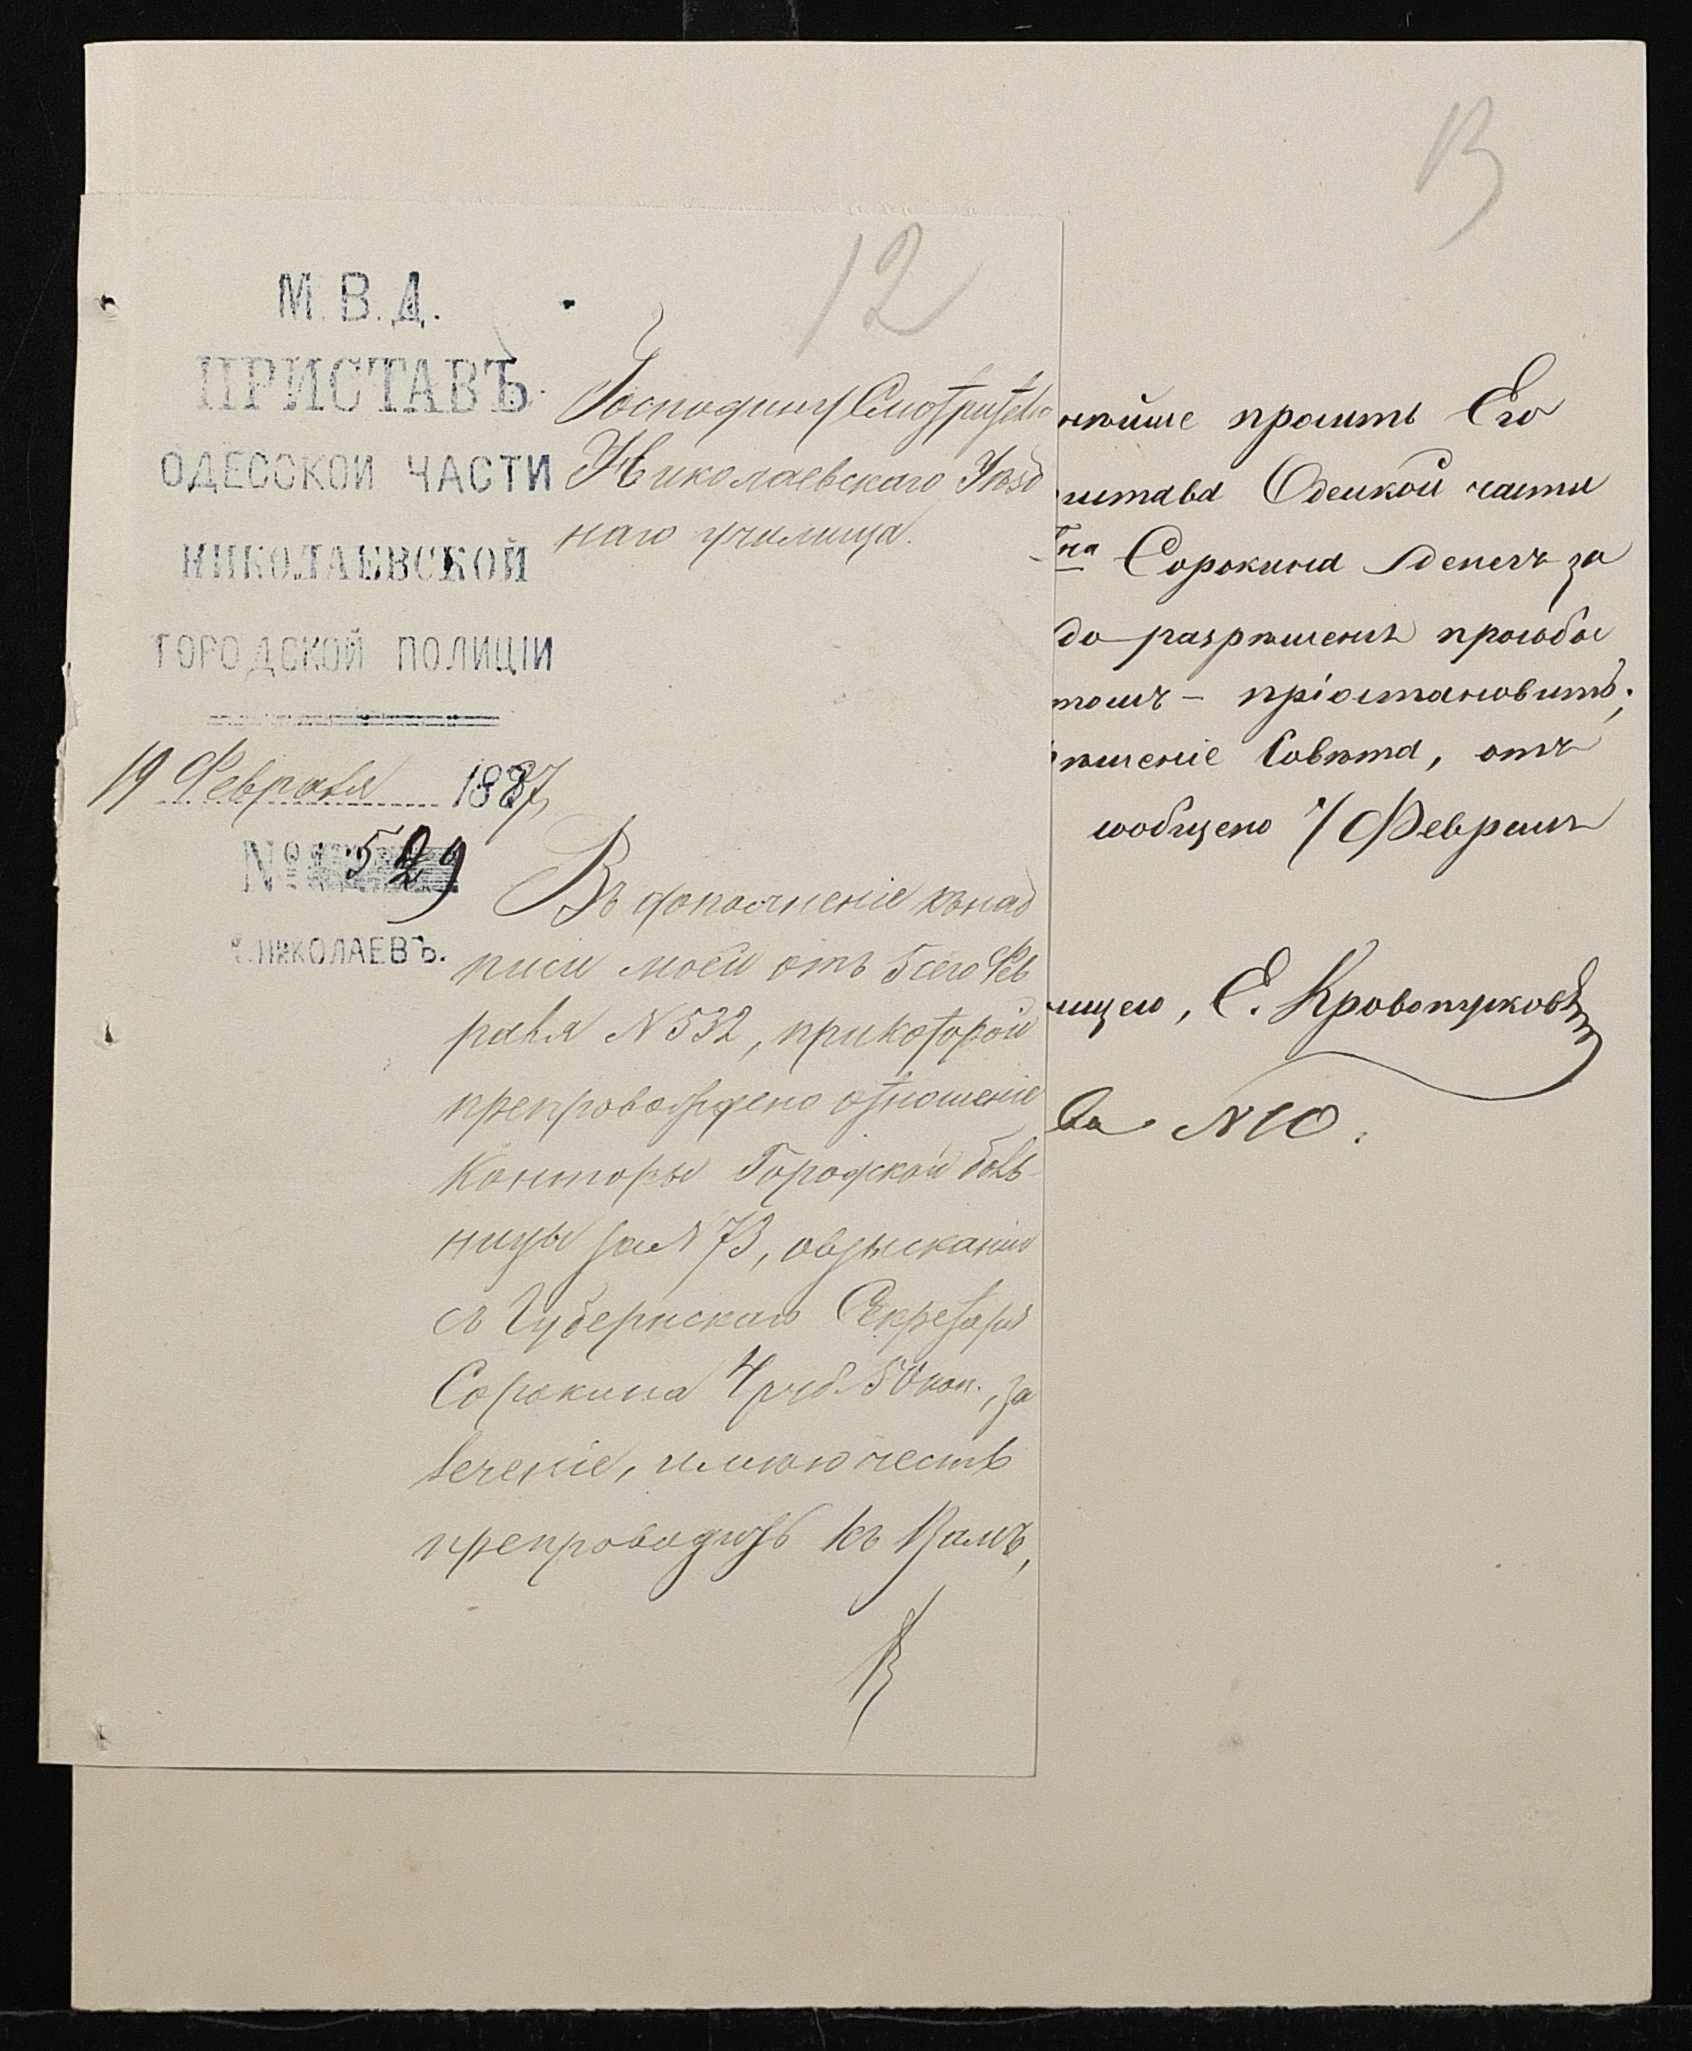 12
М. В. Д.
ПРИСТАВЪ
ОДЕССКОЙ ЧАСТИ
НИКОЛАЕВСКОЙ
ГОРОДСКОЙ ПОЛИЦІИ
19 Февраля 1887
№ 529
г. НИКОЛАЕВЪ.
Господину Смотрителю
Николаевскаго Уѣзд
наго училища.
Въ дополненіе къ над
писи моей отъ 5 сего Фев
раля N 532, при которой
препровождено отношеніе
Конторы Городской боль
ницы за N 73, о взысканіи
съ Губернскаго Секретаря
Сорокина 4 руб. 50 коп., за
леченіе, имѣю честь
препроводить къ Вамъ,
13
нѣйше просить Его
истава Одесской части
Гна Сорокина денегъ за
до разрѣшенія просьбы
томъ – пріостановить;
ѣшеніе Совѣта, отъ
сообщено 7 Февраля
ищею, Е. Кровопусковъ
ла N 10.